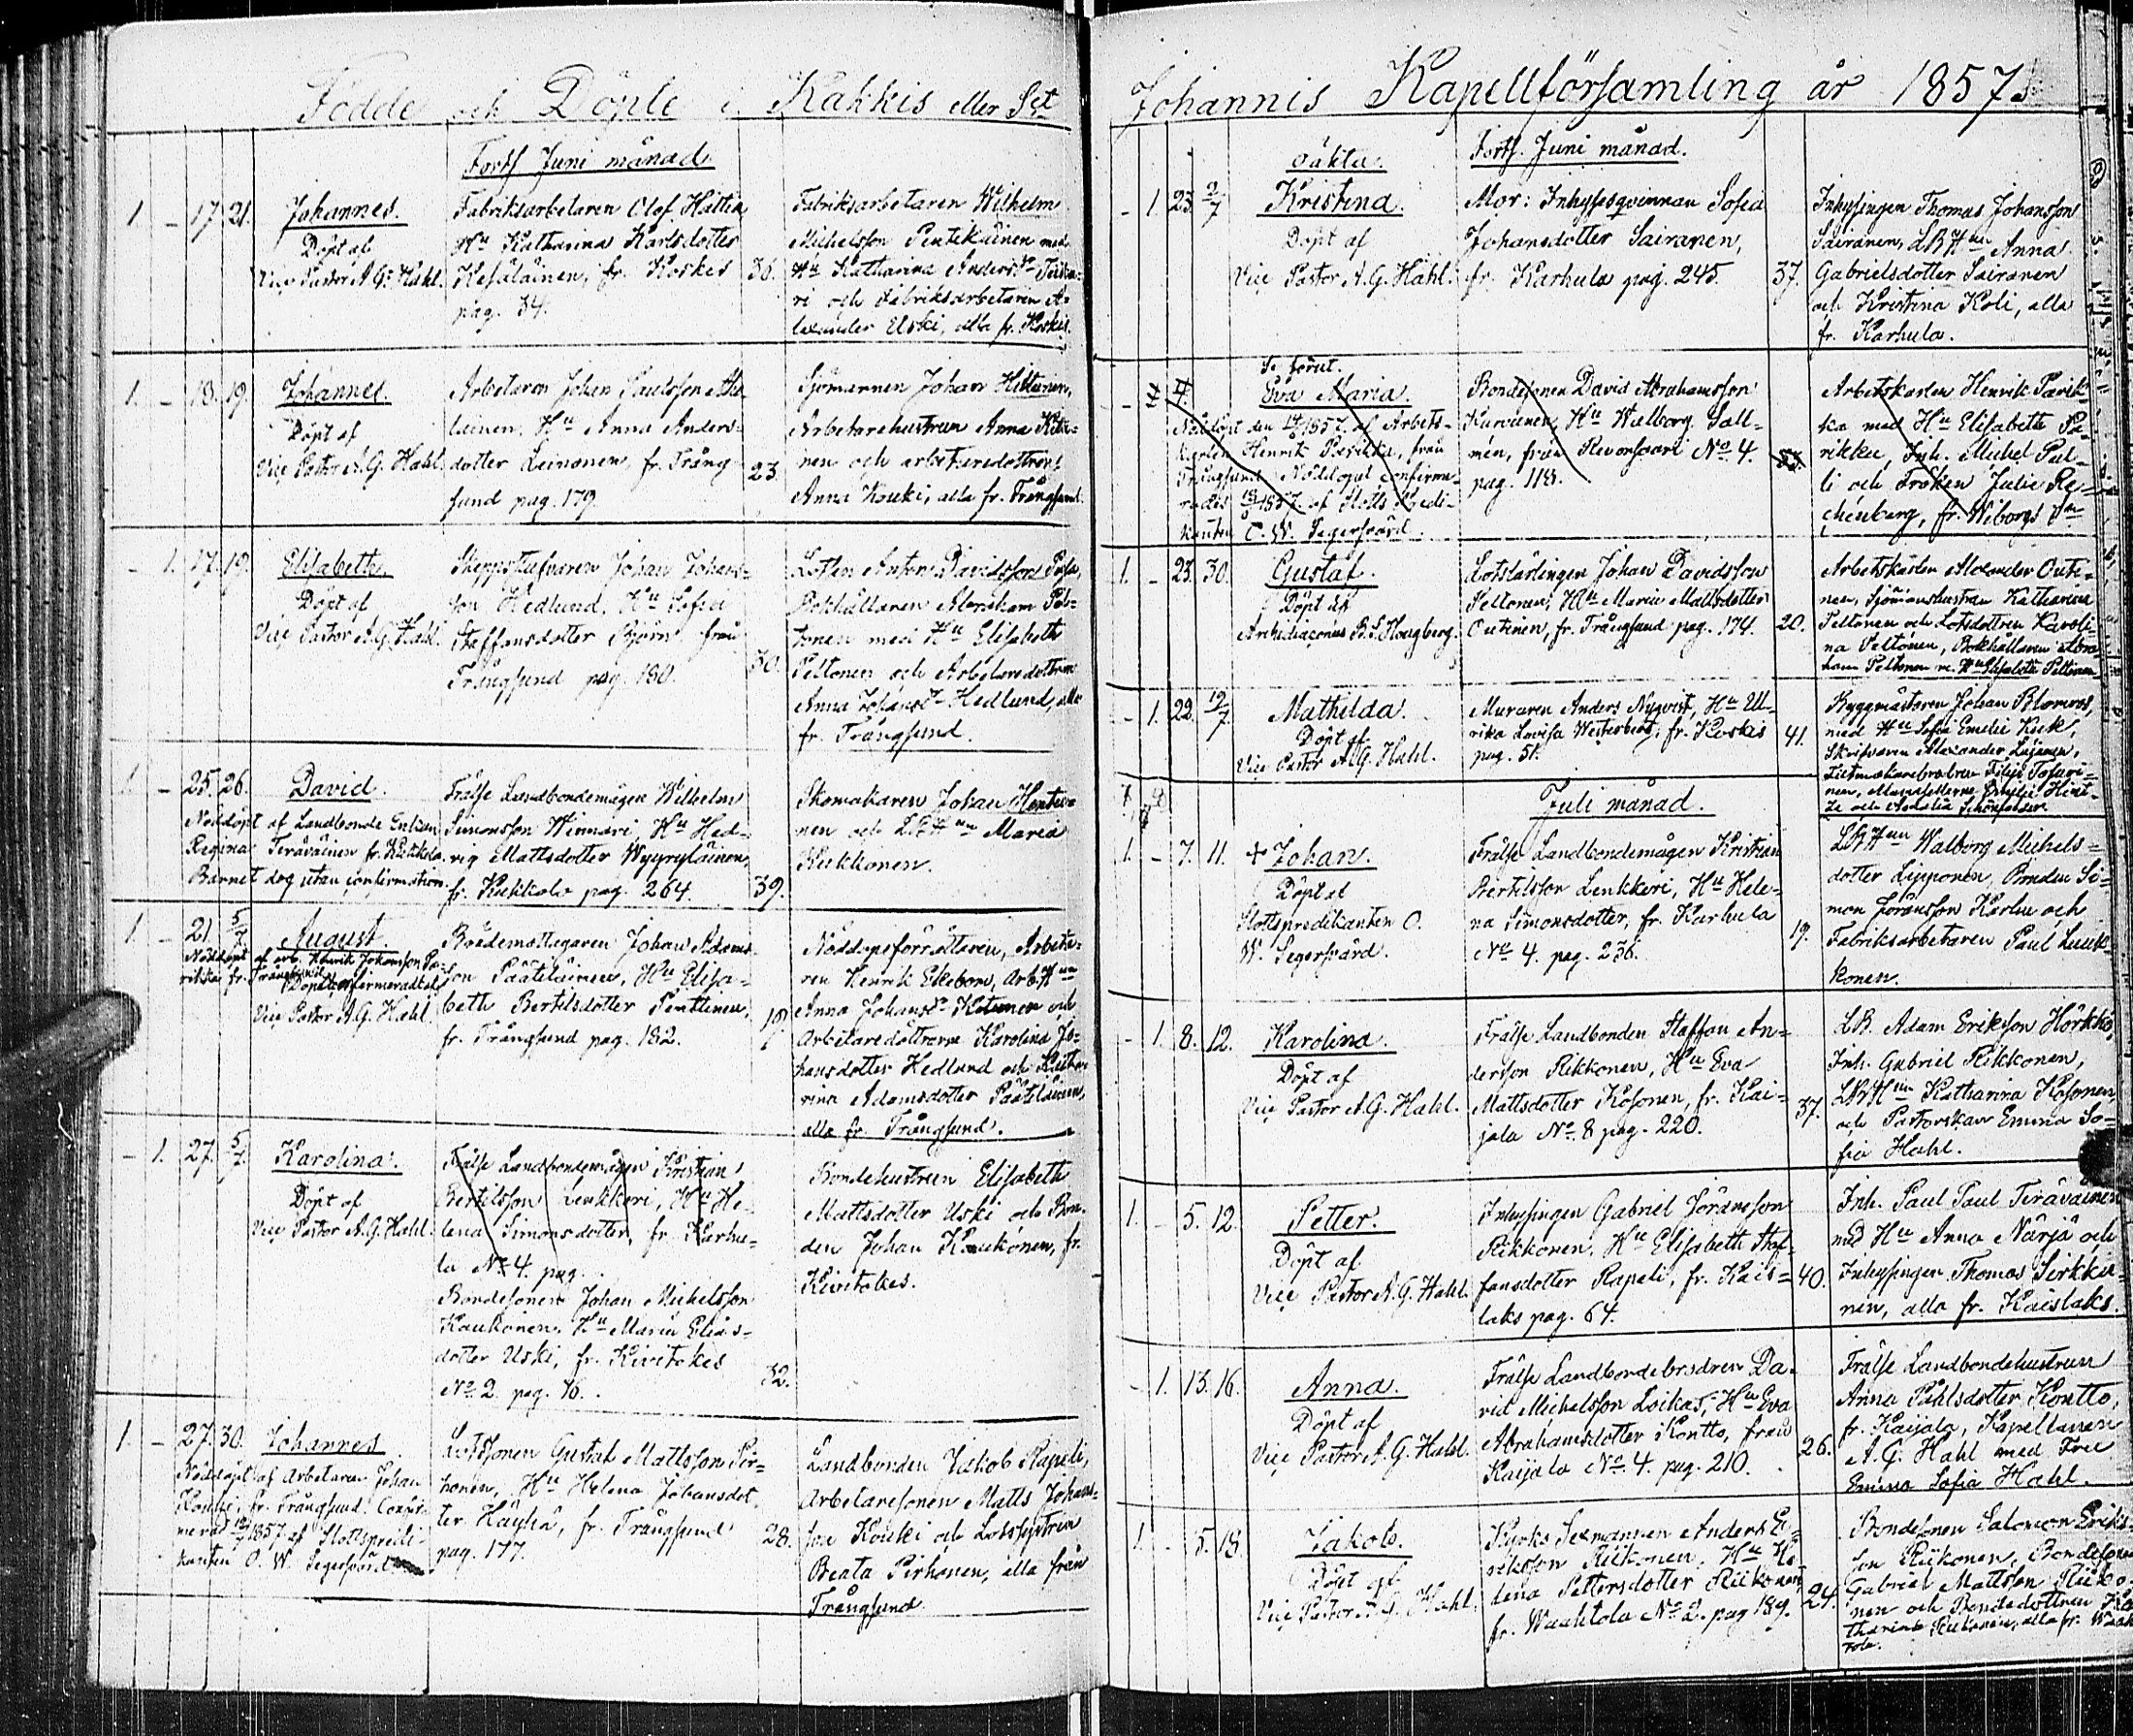 Födde och Döpte i Kakkis eller S:t
Forts Juni månad.
1 - 17. 21. Johannes.
Döpt af
Vice Pastor A. G. Hahl.
Fabriksarbetaren Olof Hattia
Hu Katharina Karlsdotter
fr. Koskis
pag. 34.
36.
Fabriksarbetaren Wilhelm
Michelsson Pentikäinen med
Hu Katharina
och fabriksarbetaren A-
lexander Uski, alla fr. Koskis.
1. - 18. 19. Johannes.
Döpt af
Vice Pastor A. G. Hahl.
Arbetaren Johan Paulsson
Hu Anna Anders-
dotter Leinonen, fr. Trång-
sund pag. 179.
23.
Sjömannen Johan Hiltunen,
Arbetarehustrun Anna
och arbetaredottren
Anna Kouki, alla fr. Trångsund.
- 1. 17. 19. Elisabeth.
Döpt af
Vice Pastor A. G. Hahl.
Johan Johans-
son Hedlund, Hu Sofia
Staffansdotter Björn, från
Trångsund pag. 180.
30.
Lotsen Anton Davidsson
Bokhållaren Abraham Pel-
tonen med Hu Elisabeth
Peltonen och Arbetaredottren
Anna Johansdr Hedlund, alla
fr. Trångsund.
1. - 25. 26. David.
Nöddöpt af Landbonde Enkan
Regina Teräväinen fr. Kukkola.
Barnet dog utan confirmation.
Frälse Landbondemågen Wilhelm
Simonsson Winnari, Hu Hed-
vig Mattsdotter
fr. Kukkola pag. 264.
39.
Skomakaren Johan
nen och LB Hun Maria
Kukkonen.
1. - 21. 5/7 August.
Nöddöpt af arb. Henrik Johansson Pa-
rikka fr. Trångsund
Döpelse confirmerad af
Vice Pastor A. G. Hahl.
Johan Adams-
son Pääteläinen, Hu Elisa-
beth Bertilsdotter Penttinen,
fr. Trångsund pag. 182.
Nöddopsförrättaren, Arbeta-
ren Henrik Ekebom, Arb Hun
Anna Johansdr och
Arbetaredöttrarne Karolina Jo-
hansdotter Hedlund och Katha-
rina Adamsdotter Pääteläinen,
alla fr. Trångsund.
- 1. 27. 5/7. Karolina.
Döpt af
Vice Pastor A. G. Hahl.
Frälse Landbondemågen Kristian
Bertilsson Lenkkeri, Hu He-
lena Simonsdotter, fr. Karhu-
la No 4. pag.
Bondesonen Johan Michelsson
Kaukonen, Hu Maria Elias-
dotter Uski, fr. Kivitokis
No 2 pag. 76.
32.
Bondehustrun Elisabeth
Mattsdotter Uski och Bon-
den Johan Kaukonen, fr.
Kivitokis.
1. - 27. 30. Johannes
Nöddöpt af Arbetaren Johan
Kouki, fr. Trångsund. Confir-
merad 12/7 1857 af Slottspredi-
kanten O. W. Segersvärd
Lotssonen Gustaf Mattsson Pir-
honen, Hu Helena Johansdot-
ter Häyhä, fr. Trångsund
pag. 177.
28.
Landbonden Jakob Rapeli,
Arbetaresonen Matts Johans-
son Kouki och Lotssystren
Beata Pirhonen, alla från
Trångsund.
Johannis Kapellförsamling år 1857.
Forts. Juni månad.
oäkta.
- 1. 23. 2/7 Kristina.
Döpt af
Vice Pastor A. G. Hahl.
Mor: Inhysesqvinnan Sofia
Johansdotter Sairanen,
fr. Karhula pag. 245.
37.
Inhysingen Thomas Johansson
Sairanen, LB Hun Anna
Gabrielsdotter Sairanen
och Kristina Koli, alla
fr. Karhula.
Se förut.
Eva Maria.
Nöddöpt den 1857 af Arbets-
karlen Henrik Parikka, från
Trångsund. Nöddopet confirme-
rades 1857 af Slotts Predi-
kanten O. W. Segersvärd.
Bondesonen David Abrahamsson
Kurvinen, Hu Walborg Sall-
från Revonsaari No 4.
pag. 118.
Arbetskarlen Henrik Parik-
ka med Hu Elisabeth Pa-
rikka, Inh. Michel Pul-
li och Fröken Julie Re-
chenberg, fr. Wiborgs Sn
1. - 23. 30. Gustaf.
Döpt af
Archidiaconus B. S. Hougberg.
Lotslärlingen Johan Davidsson
Peltonen, Hu Maria Mattsdotter
Outinen, fr. Trångsund pag. 174.
20.
Arbetskarlen Alexander Outi-
nen, Sjömanshustrun Katharina
Peltonen och Lotsdottren Karoli-
na Peltonen, Bokhållaren Abra-
ham Peltonen m. Hu Elisabeth Peltonen
- 1. 22. 12/7 Mathilda.
Döpt af
Vice Pastor A. G. Hahl.
Muraren Anders Nyqvist, Hu Ul-
rika Lovisa Westerberg, fr. Koskis
pag. 51.
41.
Byggmästaren Johan Blomros,
med Hu Sofia Emelie
Skrifvaren Alexander
Juli månad.
1. - 7. 11. + Johan.
Döpt af
Slottspredikanten O.
W. Segersvärd.
Frälse Landbondemågen Kristian
Bertilsson Lenkkeri, Hu Hele-
na Simonsdotter, fr. Karhula
No 4. pag. 236.
19.
LB Hun Walborg Michels-
dotter Lipponen, Bonden Si-
mon Göransson Karhu och
Fabriksarbetaren Paul Luuk-
konen.
- 1. 8. 12. Karolina.
Döpt af
Vice Pastor A. G. Hahl.
Frälse Landbonden Staffan An-
dersson Rikkonen, Hu Eva
Mattsdotter Kosonen, fr. Kai-
jala No 8 pag. 220.
37.
LB. Adam Eriksson Hörkkö,
Inh. Gabriel Rikkonen,
LB Hun Katharina Kosonen,
och Pastorskan Emma So-
fia Hahl.
1. - 5. 12. Petter.
Döpt af
Vice Pastor A. G. Hahl.
Inhysingen Gabriel Göransson
Rikkonen, Hu Elisabeth Staf-
fansdotter Rapeli, fr. Kais-
laks pag. 64.
40.
Inh. Paul Paul Teräväinen
med Hu Anna Närjä och
Inhysingen Thomas Sirkku-
nen, alla fr. Kaislaks.
- 1. 13. 16. Anna.
Döpt af
Vice Pastor A. G. Hahl.
Frälse Landbondebrodren Da-
vid Michelsson Loikas, Hu Eva
Abrahamsdotter Kontto, från
Kaijala No 4. pag. 210.
26.
Frälse Landbondehustrun
Anna Pahlsdotter Kontto,
fr. Kaijala, Kapellanen
A. G. Hahl med Fru
Emma Sofia Hahl.
1. - 15. 18. Jakob.
Döpt af
Vice Pastor A. G. Hahl.
Kyrko Sexmannen Anders E-
riksson Riikonen, Hu He-
lena Pettersdotter Riikonen,
fr. Waahtola No 2. pag 189.
24.
Bondesonen Salomon Eriks-
son Riikonen, Bondesonen
Gabriel Mattsson Riiko-
nen och Bondedottren Ka-
tharina Riikonen, alla fr. Waah-
tola.